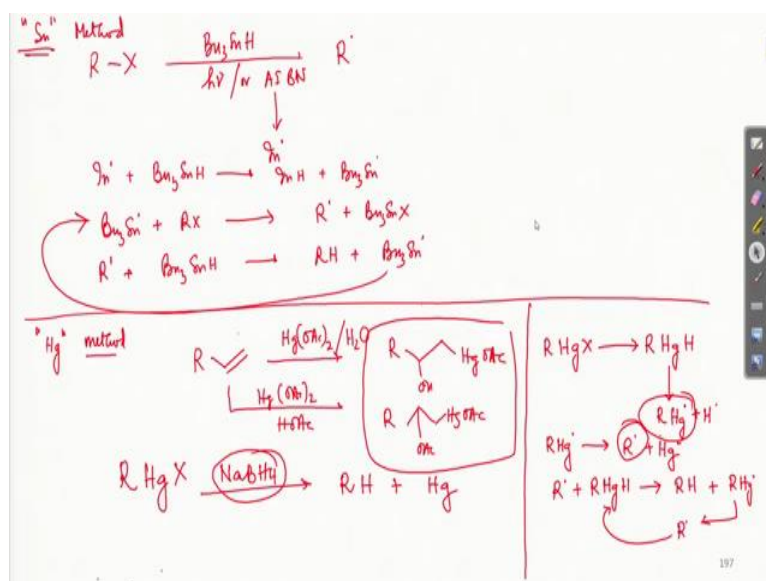 "Sn" Method
R-X Bu3SnH R•
hν/or AIBN
In•
In• + Bu3SnH → InH + Bu3Sn•
Bu3Sn• + RX → R• + Bu3SnX
R• + Bu3SnH → RH + Bu3Sn•
"Hg" method
R Hg(OAc)2/H2O R HgOAc
OH
Hg(OAc)2 R HgOAc
HOAc OAc
RHgX NaBH4 → RH + Hg
RHgX → RHgH
RHg• + H•
RHg• → R• + Hg
R• + RHgH → RH + RHg•
R•
197